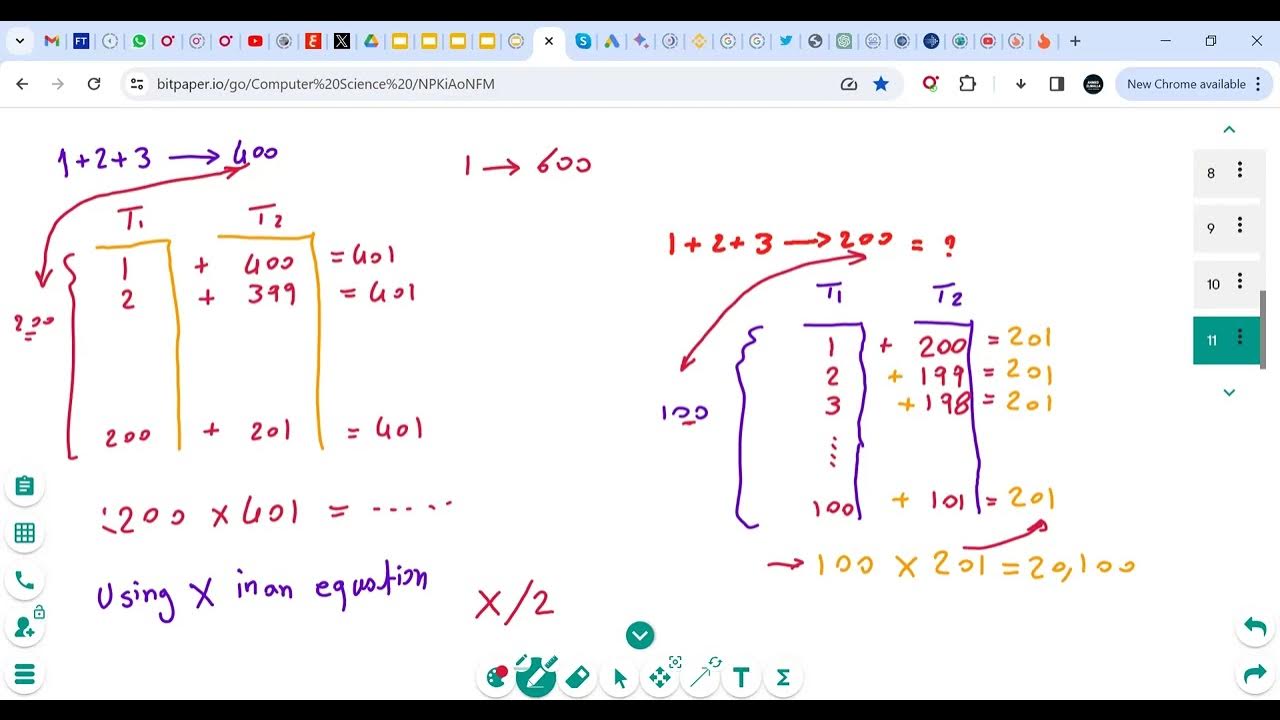 bitpaper.io/go/Computer%20Science%20/NPKiAoNFM
New Chrome available
1+2+3 → 400
T1 T2
1 + 400 = 401
2 + 399 = 401
200
200 + 201 = 401
:200 × 401 = ·····
Using X in an equation
X/2
1 → 600
1+2+3 → 200 = ?
T1 T2
1 + 200 = 201
2 + 199 = 201
3 + 198 = 201
100
100 + 101 = 201
→ 100 × 201 = 20,100
8
9
10
11
T
Σ